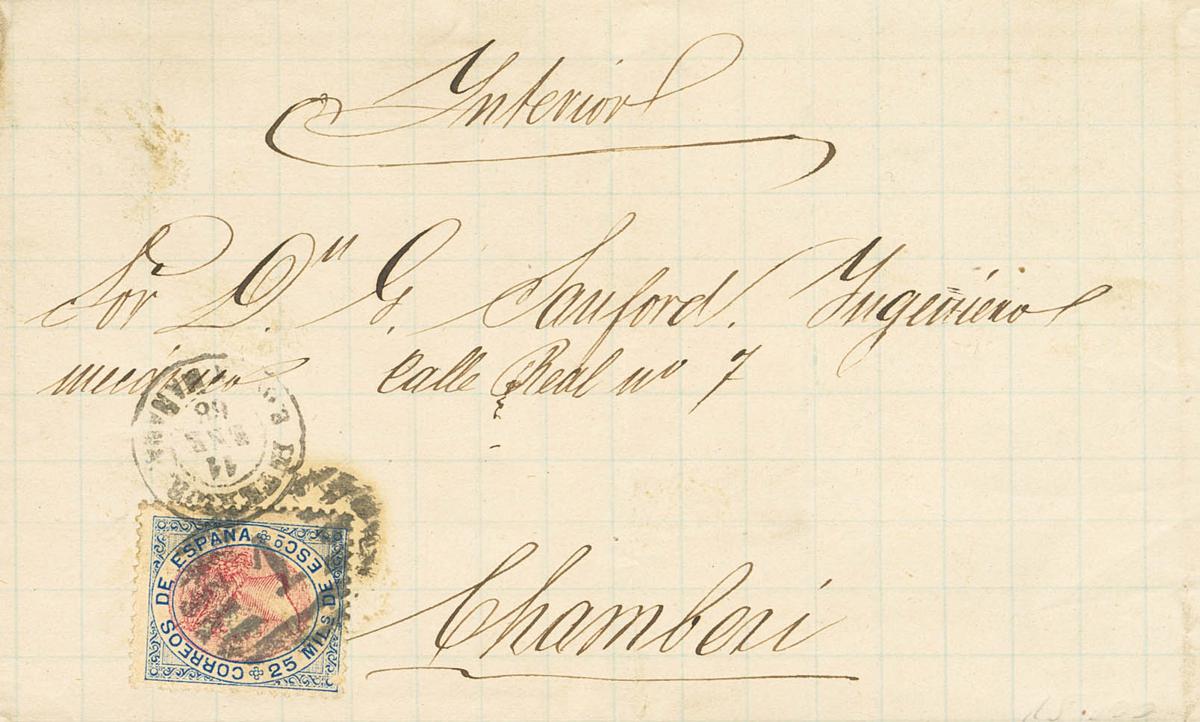 Interior
Sor Dn. G. Sanford. Ingeniero
mecánico calle Real no 7
INTERIOR
11
ENE
CORREOS DE ESPANA
25 MILS DE ESCO
Chamberi